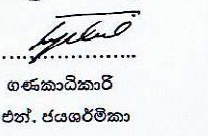 ගණකාධිකාරී
එන්. ජයශර්මිකා